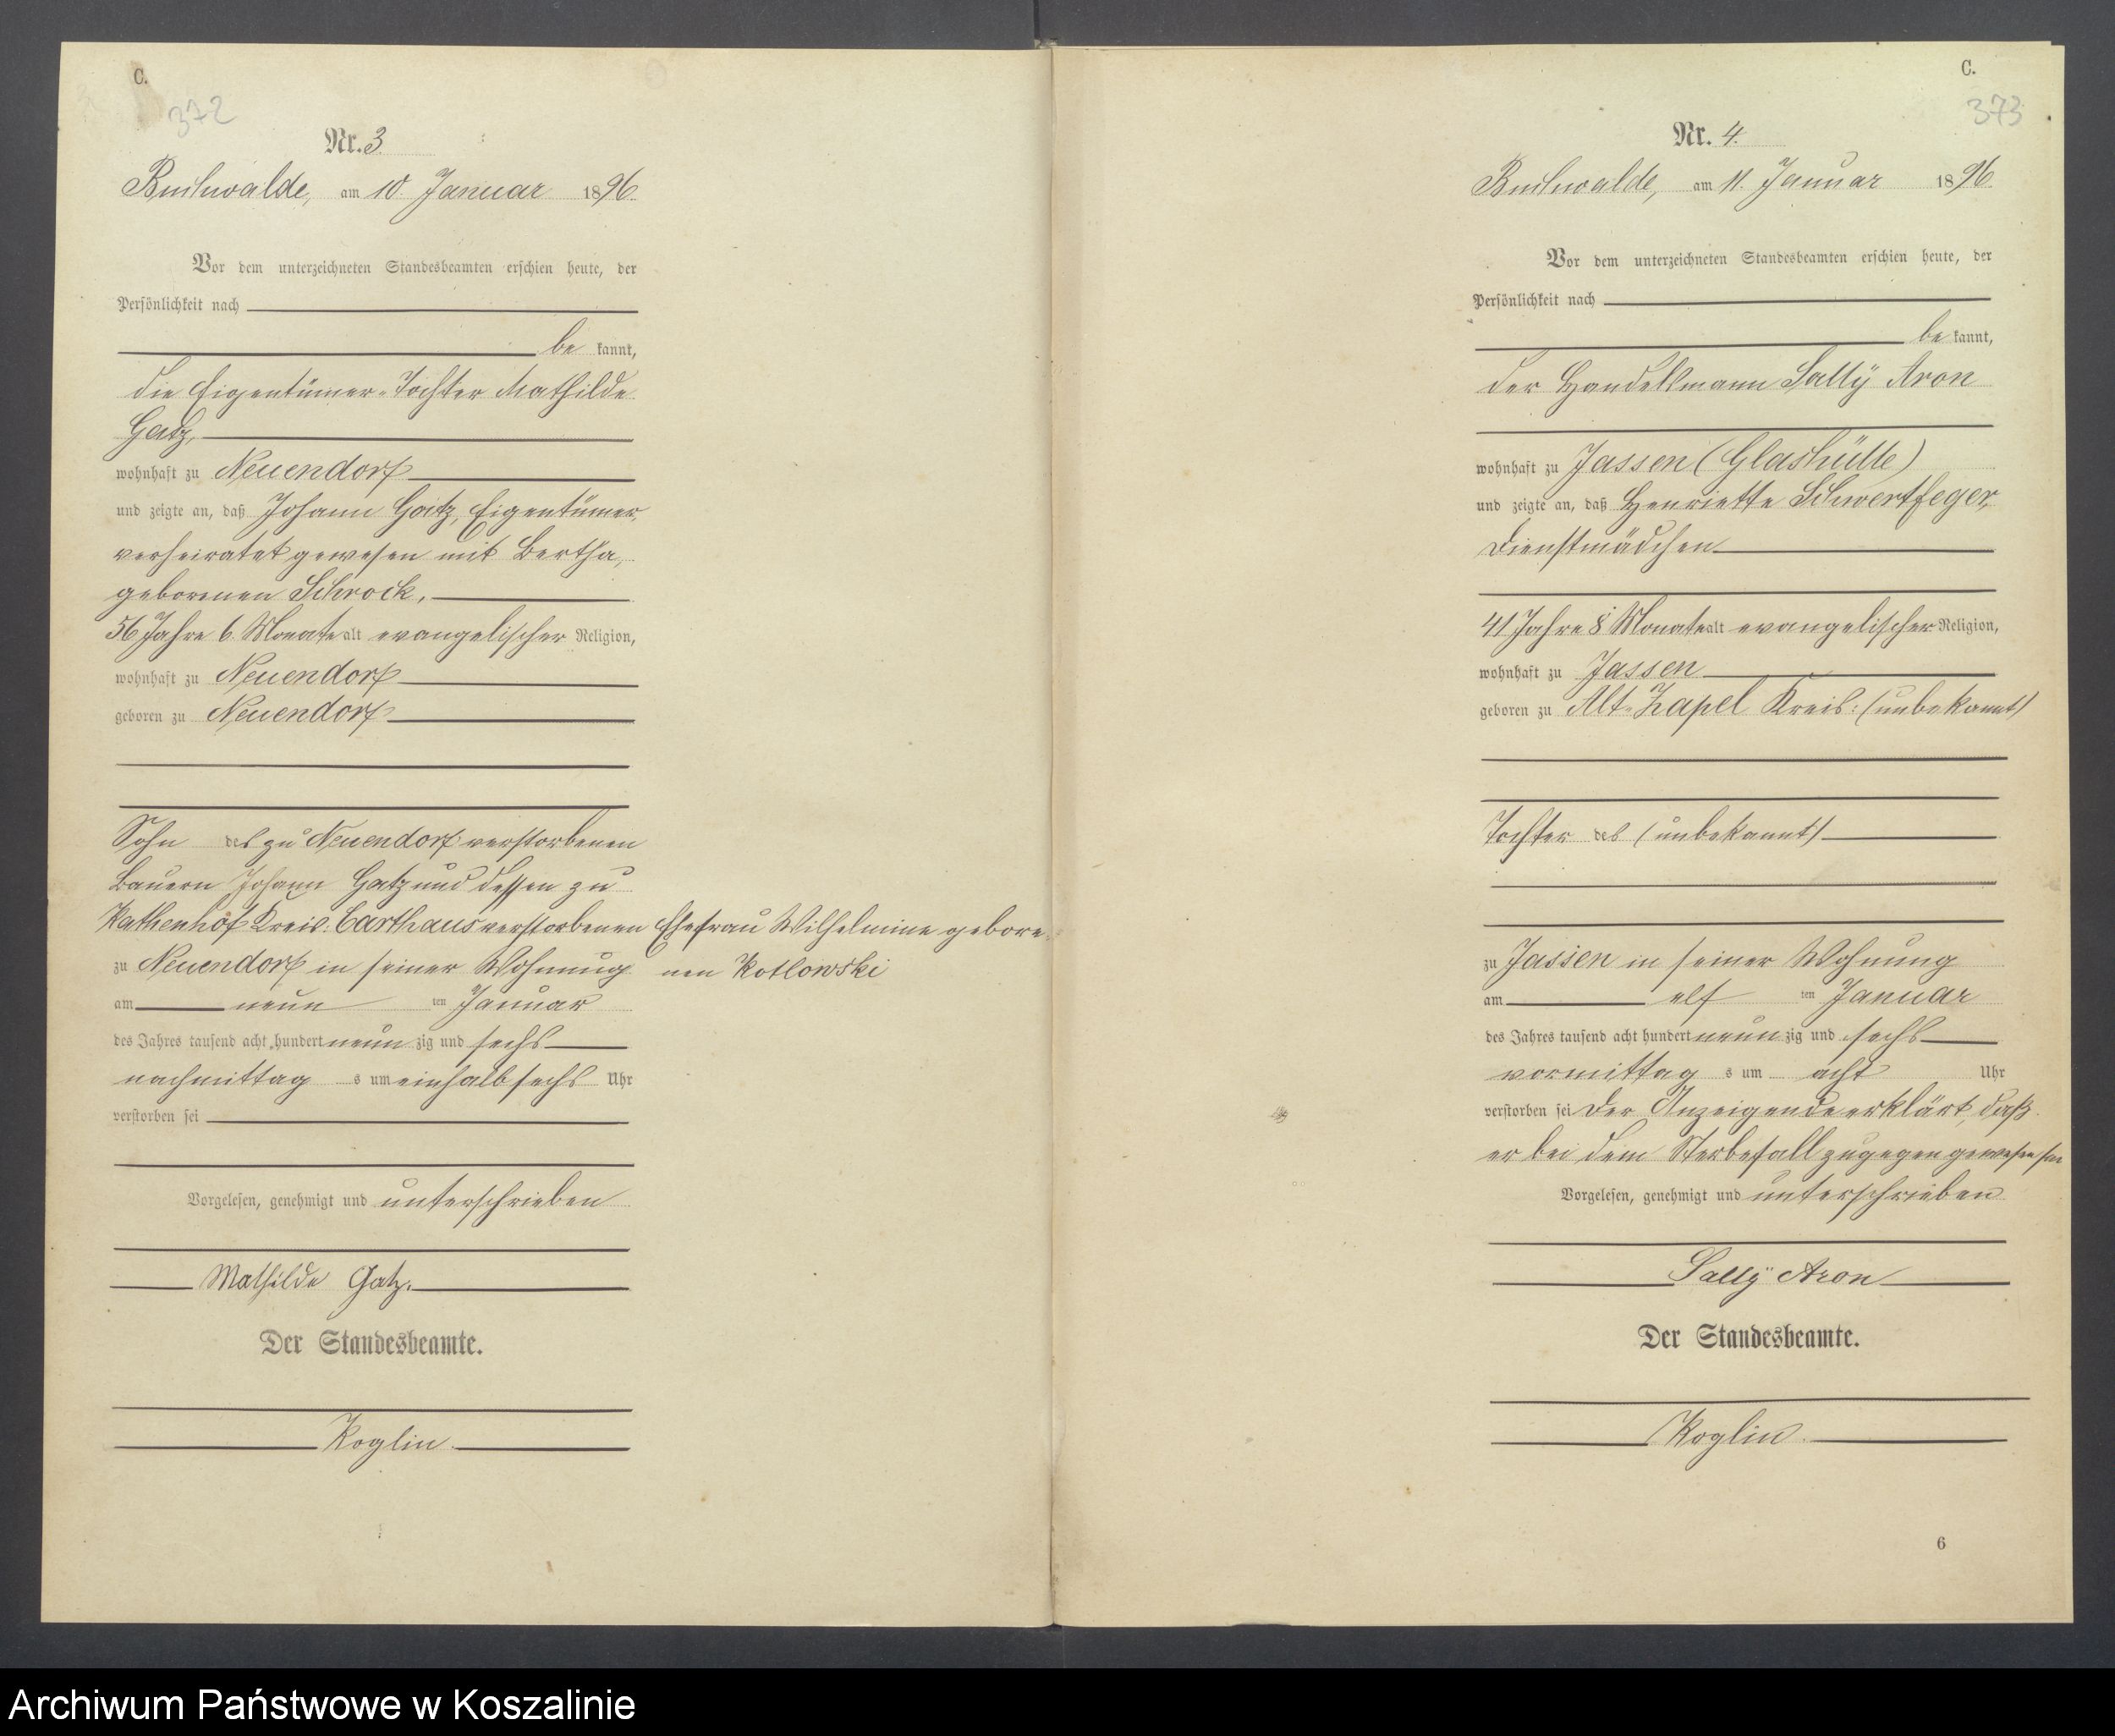 C.
372
Nr. 3
Buchwalde, am 10. Januar 1896.
Vor dem unterzeichneten Standesbeamten erschien heute, der
Persönlichkeit nach
be kannt,
die Eigentümer-Tochter Mathilde
Gatz,
wohnhaft zu Neuendorf
und zeigte an, daß Johann Gatz, Eigentümer,
verheiratet gewesen mit Bertha,
geborenen Schrock,
56 Jahre 6 Monate alt evangelischer Religion,
wohnhaft zu Neuendorf
geboren zu Neuendorf
Sohn des zu Neuendorf verstorbenen
Bauern Johann Gatz und dessen zu
Kathenhof Kreis: Carthaus verstorbenen Ehefrau Wilhelmine gebore-
nen Kotlowski
zu Neuendorf in seiner Wohnung
am neun ten Januar
des Jahres tausend acht hundert neun zig und sechs
nachmittag s um einhalb sechs Uhr
verstorben sei
Vorgelesen, genehmigt und unterschrieben
Mathilde Gatz.
Der Standesbeamte.
Koglin.
C.
373
Nr. 4.
Buchwalde, am 11. Januar 1896
Vor dem unterzeichneten Standesbeamten erschien heute, der
Persönlichkeit nach
be kannt,
der Handelsmann Sally Aron
wohnhaft zu Jassen (Glashütte)
und zeigte an, daß Henriette Schwertfeger,
Dienstmädchen
41 Jahre 8 Monate alt evangelischer Religion,
wohnhaft zu Jassen
geboren zu Alt-Zapel Kreis: (unbekannt)
Tochter des (unbekannt)
zu Jassen in seiner Wohnung
am elf ten Januar
des Jahres tausend acht hundert neun zig und sechs
vormittag s um acht Uhr
verstorben sei Der Anzeigende erklärt, daß
er bei dem Sterbefall zugegen gewesen sei
Vorgelesen, genehmigt und unterschrieben
Sally Aron
Der Standesbeamte.
Koglin.
6
Archiwum Państwowe w Koszalinie